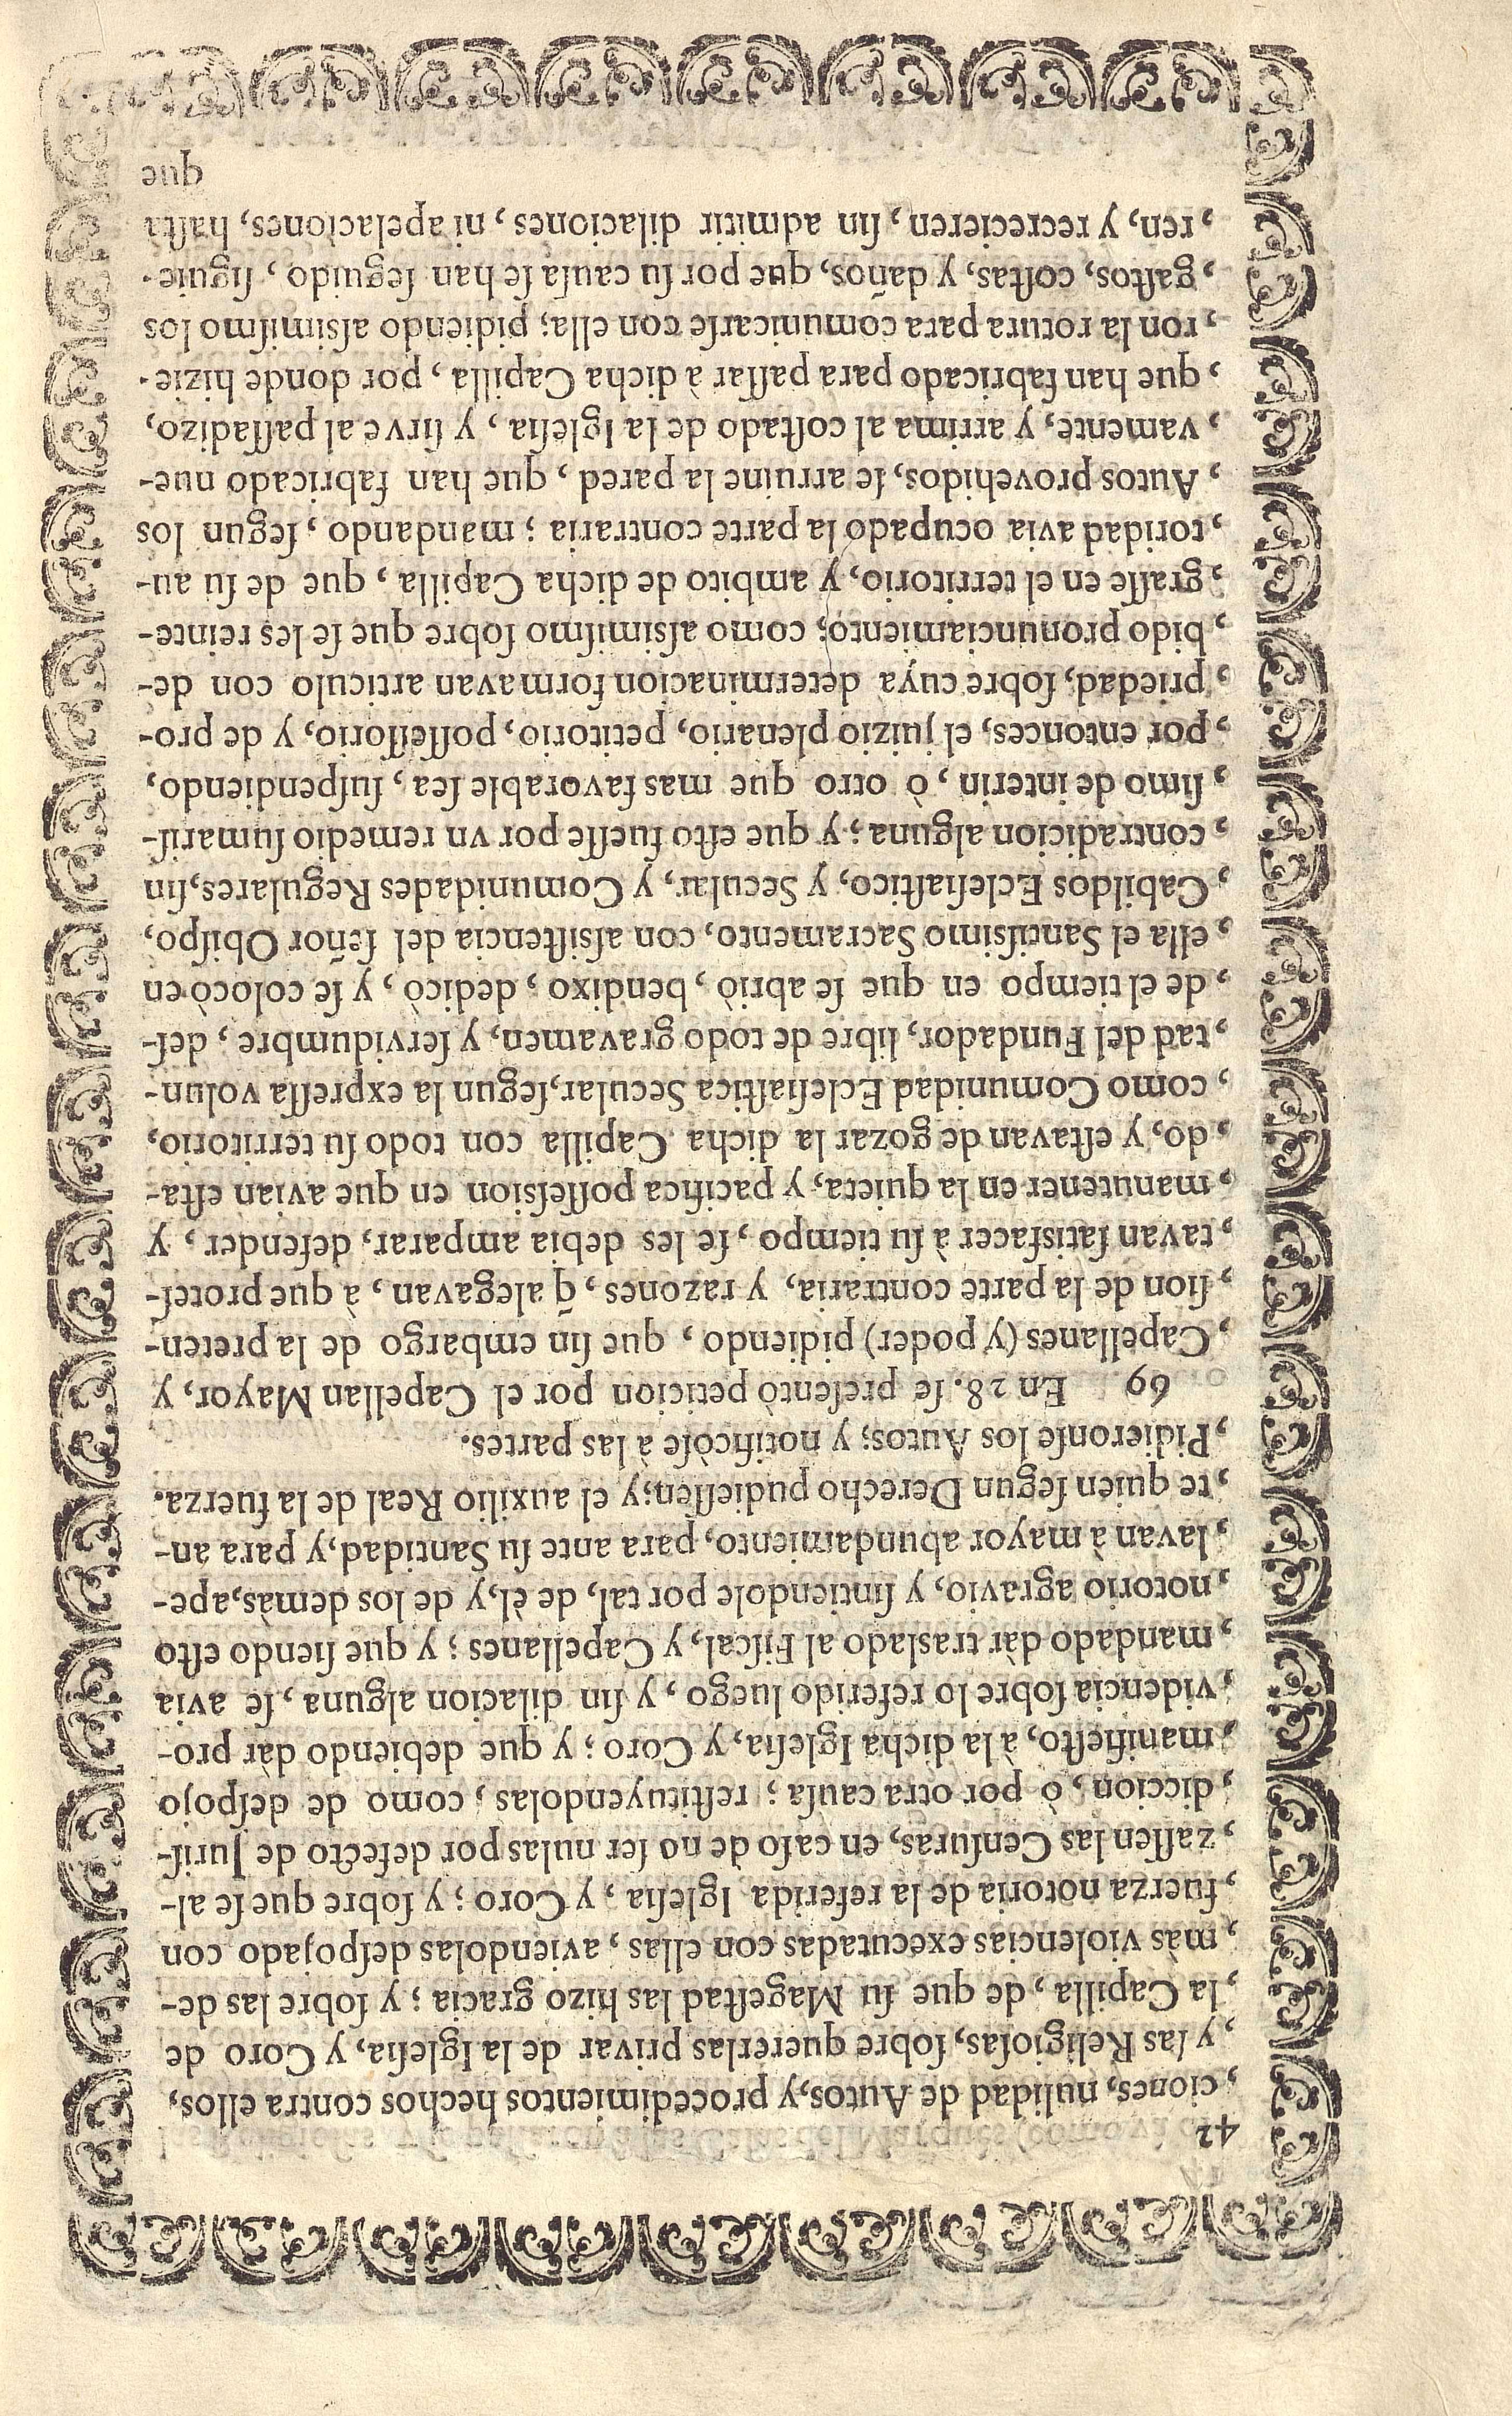 42
,ciones, nulidad de Autos,y procedimientos hechos contra ellos,
,y las Religioſas, ſobre quererlas privar de la Igleſia, y Coro de
,la Capilla, de que ſu Mageſtad las hizo gracia; y ſobre las de-
,màs violencias executadas con ellas, aviendolas deſpojado con
,fuerza notoria de la referida Igleſia, y Coro; y ſobre que ſe al-
,zaſſen las Cenſuras, en caſo de no ſer nulas por defecto de Juriſ-
,diccion, ò por otra cauſa; reſtituyendolas, como de deſpojo
,manifieſto, à la dicha Igleſia, y Coro; y que debiendo dàr pro-
,videncia ſobre lo referido luego, y ſin dilacion alguna, ſe avia
,mandado dàr traslado al Fiſcal, y Capellanes; y que ſiendo eſto
,notorio agravio, y ſintiendole por tal, de èl,y de los demàs,ape-
,lavan à mayor abundamiento, para ante ſu Santidad,y para an-
,te quien ſegun Derecho pudieſſen;y el auxilio Real de la fuerza.
,Pidieronſe los Autos; y notificòſe à las partes.
69 En 28. ſe preſentò peticion por el Capellan Mayor, y
,Capellanes (y poder) pidiendo, que ſin embargo de la preten-
,ſion de la parte contraria, y razones, q̃ alegavan, à que proteſ-
,tavan ſatisfacer à ſu tiempo, ſe les debia amparar, defender, y
,manutener en la quieta, y pacifica poſſeſsion en que avian eſta-
,do, y eſtavan de gozar la dicha Capilla con todo ſu territorio,
,como Comunidad Ecleſiaſtica Secular,ſegun la expreſſa volun-
,tad del Fundador, libre de todo gravamen, y ſervidumbre, deſ-
,de el tiempo en que ſe abriò, bendixo, dedicò, y ſe colocò en
,ella el Santiſsimo Sacramento, con aſsiſtencia del ſeñor Obiſpo,
,Cabildos Ecleſiaſtico, y Secular, y Comunidades Regulares,ſin
,contradicion alguna; y que eſto fueſſe por vn remedio ſumariſ-
,ſimo de interin, ò otro que mas favorable ſea, ſuſpendiendo,
,por entonces, el juizio plenario, petitorio, poſſeſſorio, y de pro-
,priedad, ſobre cuya determinacion formavan articulo con de-
,bido pronunciamiento; como aſsimiſmo ſobre que ſe les reinte-
,graſſe en el territorio, y ambito de dicha Capilla, que de ſu au-
,toridad avia ocupado la parte contraria; mandando, ſegun los
,Autos provehidos, ſe arruine la pared, que han fabricado nue-
,vamente, y arrima al coſtado de la Igleſia, y ſirve al paſſadizo,
,que han fabricado para paſſar à dicha Capilla, por donde hizie-
,ron la rotura para comunicarſe con ella; pidiendo aſsimiſmo los
,gaſtos, coſtas, y daños, que por ſu cauſa ſe han ſeguido, ſiguie-
,ren, y recrecieren, ſin admitir dilaciones, ni apelaciones, haſta
que